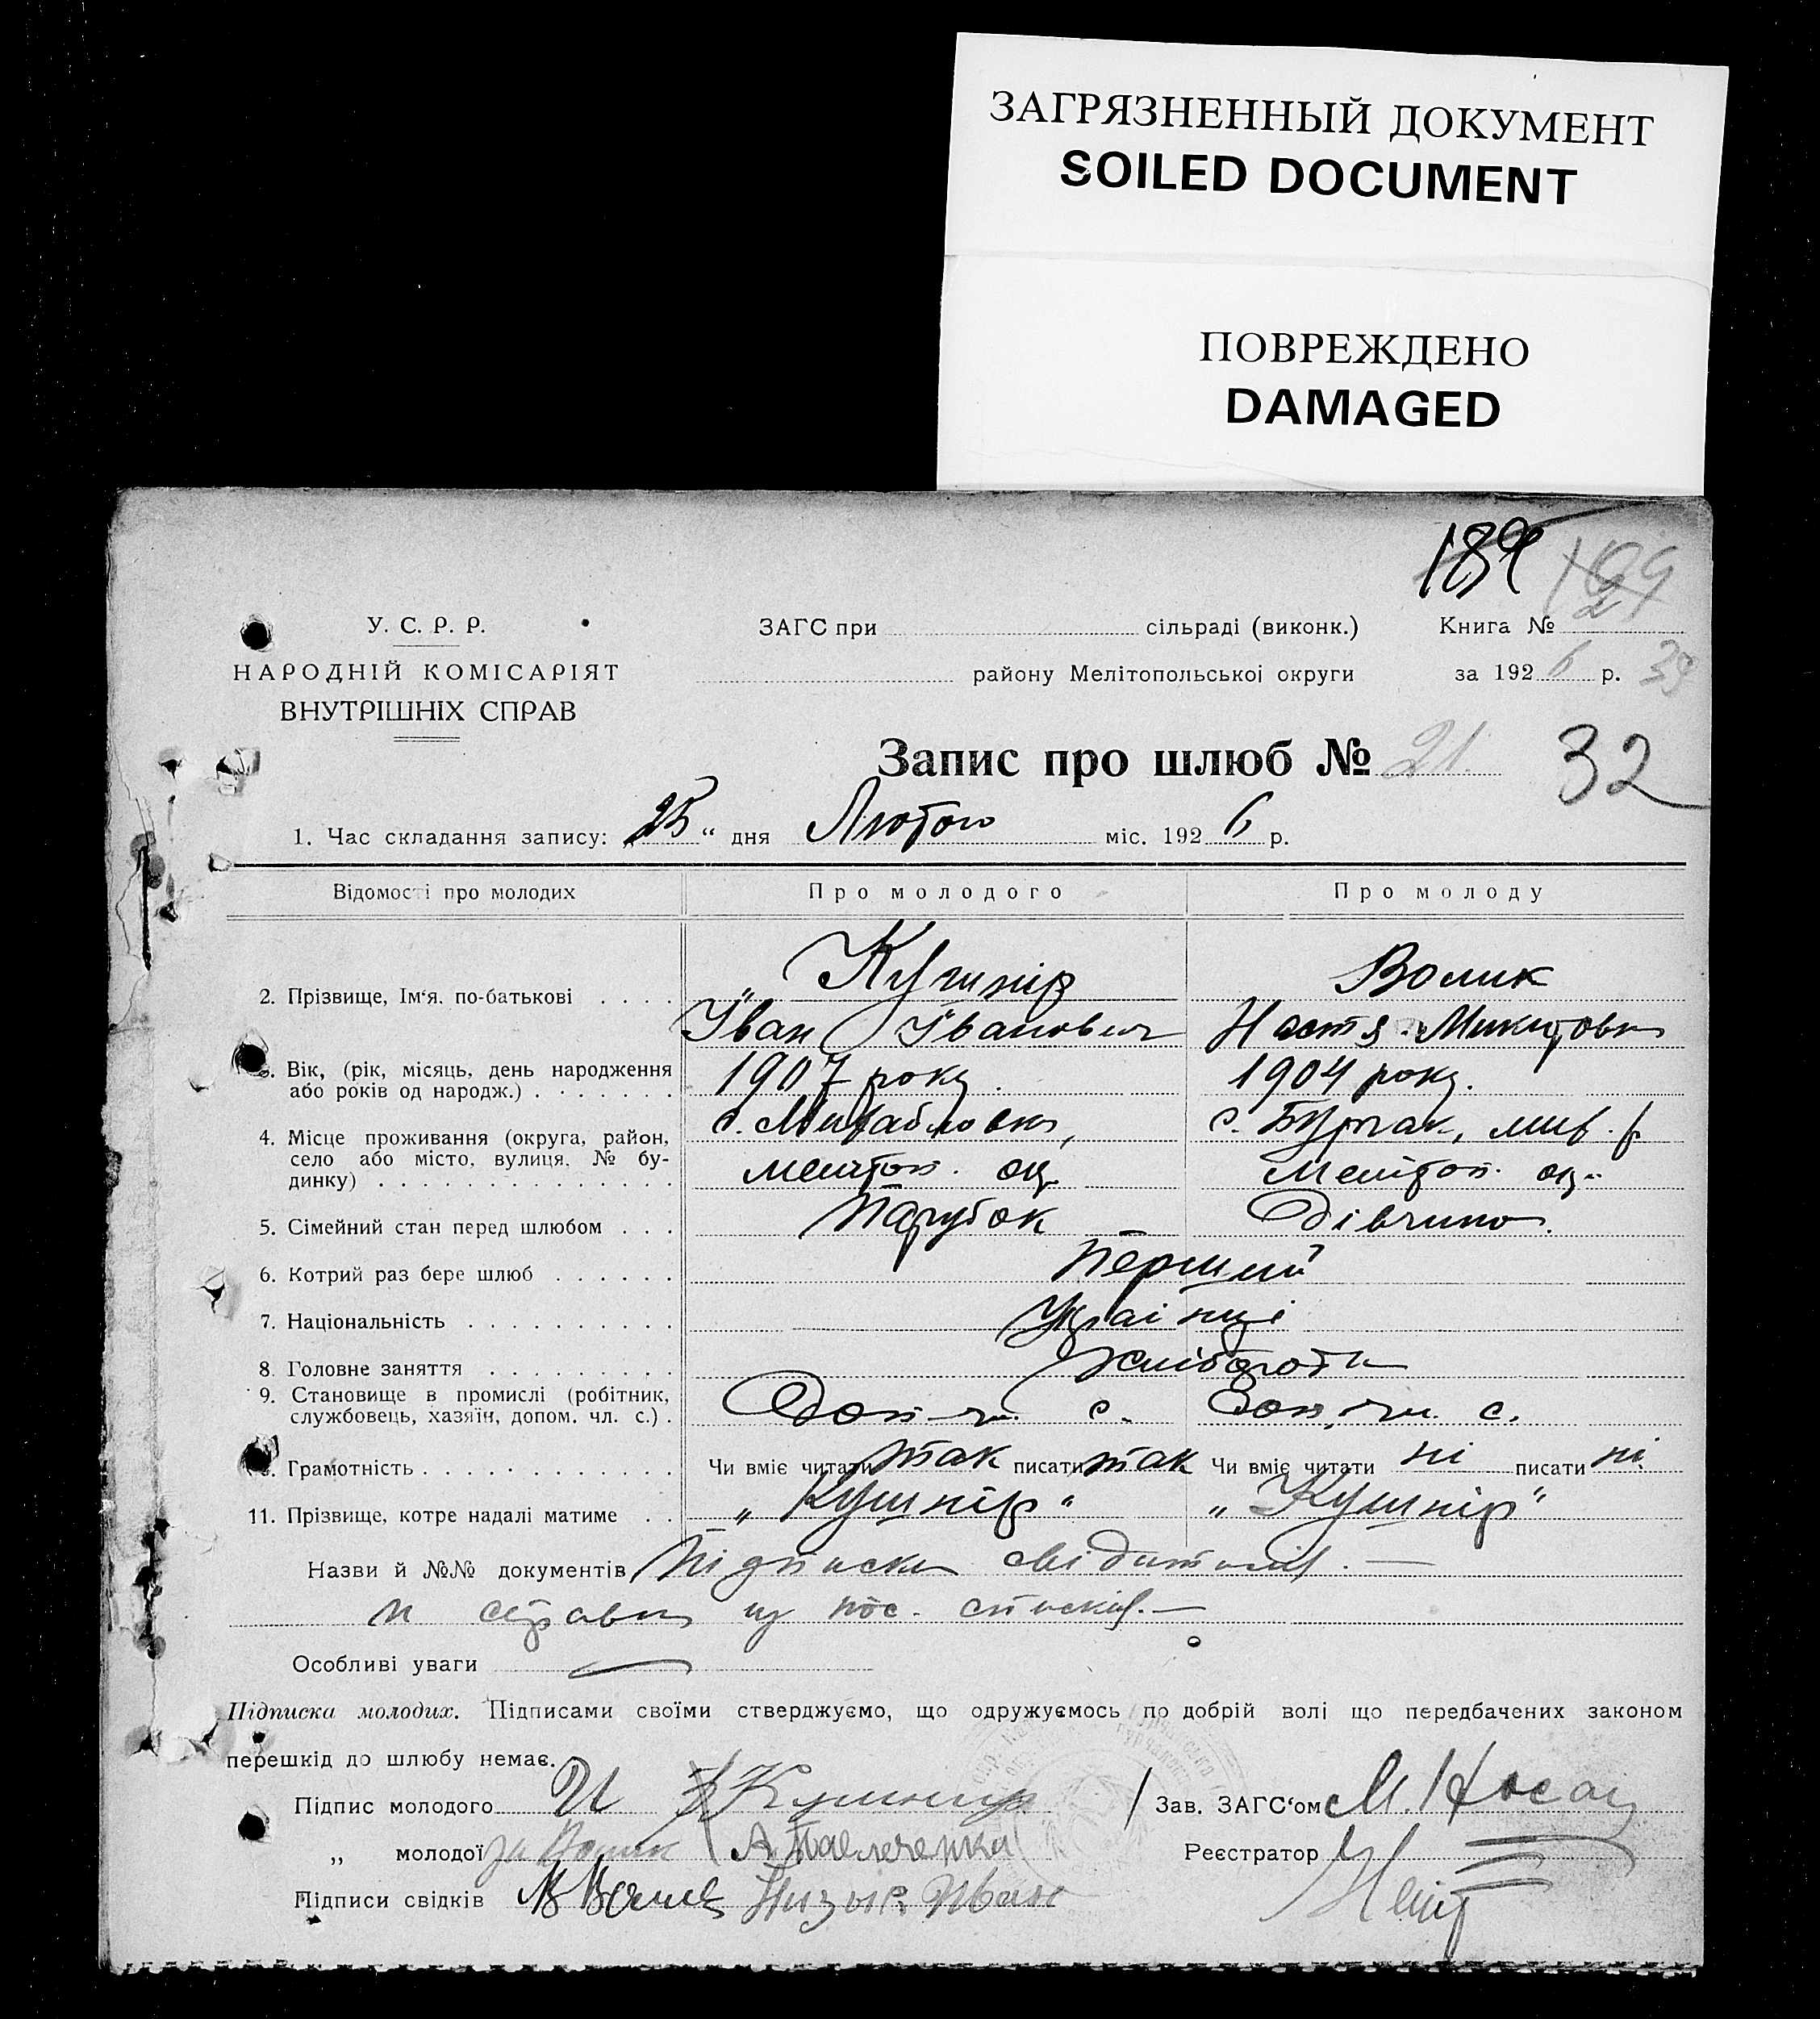 ЗАГРЯЗНЕННЫЙ ДОКУМЕНТ
SOILED DOCUMENT
ПОВРЕЖДЕНО
DAMAGED
189
У. С. Р. Р.
ЗАГС при сільраді (виконк.)
Книга № 2
НАРОДНІЙ КОМІСАРІЯТ
району Мелітопольської округи
за 1926 р. 39
ВНУТРІШНІХ СПРАВ
Запис про шлюб № 21. 32
1. Час складання запису: „25“ дня Лютого міс. 1926 р.
Відомості про молодих Про молодого Про молоду
Кушнір Волик
2. Прізвище, Ім‘я, по-батькові
Іван Іванович Настя Микитовн
3. Вік, (рік, місяць, день народження 1907 року. 1904 року.
або років од народж.)
с. Михайловка, с. Бурчак, мих. р
4. Місце проживання (округа, район,
село або місто, вулиця, № бу- Мелітоп. ок. Мелітоп. ок.
динку)
5. Сімейний стан перед шлюбом Парубок Дівчина.
6. Котрий раз бере шлюб Перший
7. Національність Українці
8. Головне заняття Хлібороби
9. Становище в промислі (робітник, Доп. чл. с. Доп. чл. с.
службовець, хазяїн, допом. чл. с.)
Грамотність Чи вміє читати так писати так Чи вміє читати ні писати ні
11. Прізвище, котре надалі матиме „Кушнір“ „Кушнір“
Назви й №№ документів Підписка свідителів. —
и справка из пос. списків. —
Особливі уваги —
Підписка молодих. Підписами своїми стверджуємо, що одружуємось по добрій волі що передбачених законом
перешкід до шлюбу немає.
Підпис молодого И Кушнир Зав. ЗАГС‘ом М. Носа
„ молодої за Волик Реєстратор
Підписи свідків Иван